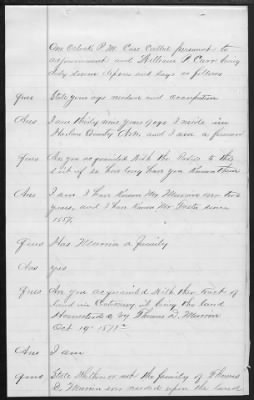 One Oclock P.M. Case Called pursuant to
adjournment and William P. Carr being
duly sworn deposes and says as follows
Ques State your age residence and occupation
Ans I am thirty nine years of age I reside in
County Ark and I am a farmer
Ques Are you acquainted with the Parties to this
suit if so how long have you known them
Ans I am I have known Mr two
years, and I have known Mr since
Ques Has a family
Ans yes
Ques Are you acquainted with the tract of
land in it being the land
Homesteaded by Thomas D.
Oct 19th 1871
Ans I am
Ques State whether or not the family of Thomas
D. ever resided upon the land